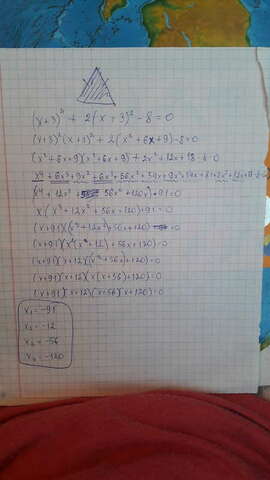 (x+3)⁴ + 2(x+3)² - 8 = 0
(x+3)²(x+3)² + 2(x²+6x+9) - 8 = 0
(x²+6x+9)(x²+6x+9) + 2x²+12x+18-8=0
x⁴+6x³+9x²+6x³+36x²+54x+9x²+54x+81+2x²+12x+18-8=0
x⁴ + 12x³ + 56x² + 120x + 91 = 0
x(x³+12x²+56x+120)+91=0
(x+91)(x³+12x²+56x+120) = 0
(x+91)(x²(x+12)+56x+120)=0
(x+91)(x+12)(x²+56x)+120)=0
(x+91)(x+12)(x(x+56)+120)=0
(x+91)(x+12)(x+56)(x+120)=0
x₁ = -91
x₂ = -12
x₃ = -56
x₄ = -120